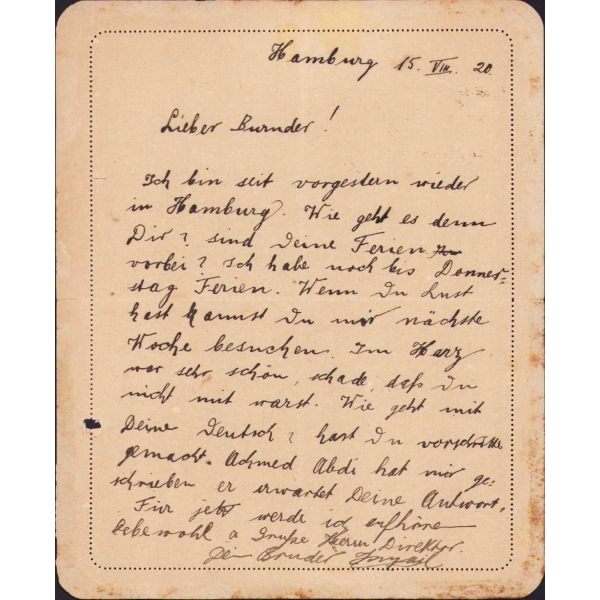 Hamburg 15. VIII. 20
Lieber Burnder!
Ich bin seit vorgestern wieder
in Hamburg. Wie geht es denn
Dir? sind Deine Ferien
vorbei? Ich habe noch bis Donners-
tag Ferien. Wenn Du Lust
hast kannst Du mir nächste
Woche besuchen. Im Harz
war sehr schön, schade, daß Du
nicht mit warst. Wie geht mit
Deine Deutsch? hast Du vorschritte
gemacht. Achmed Abdi hat mir ge-
schrieben er erwartet Deine Antwort.
Für jetzt werde ich aufhören
Lebewohl u Gruße Herrn Direktor.
Dein Bruder